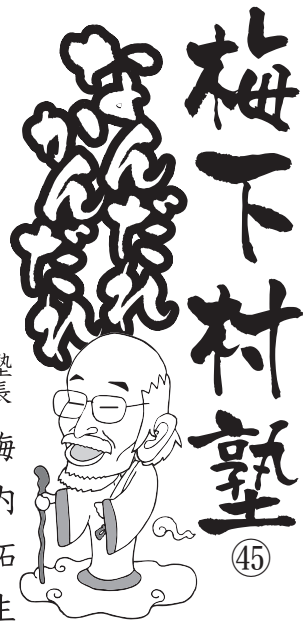 梅下村塾
㊺
なんだれ
かんだれ
塾長 梅内拓生